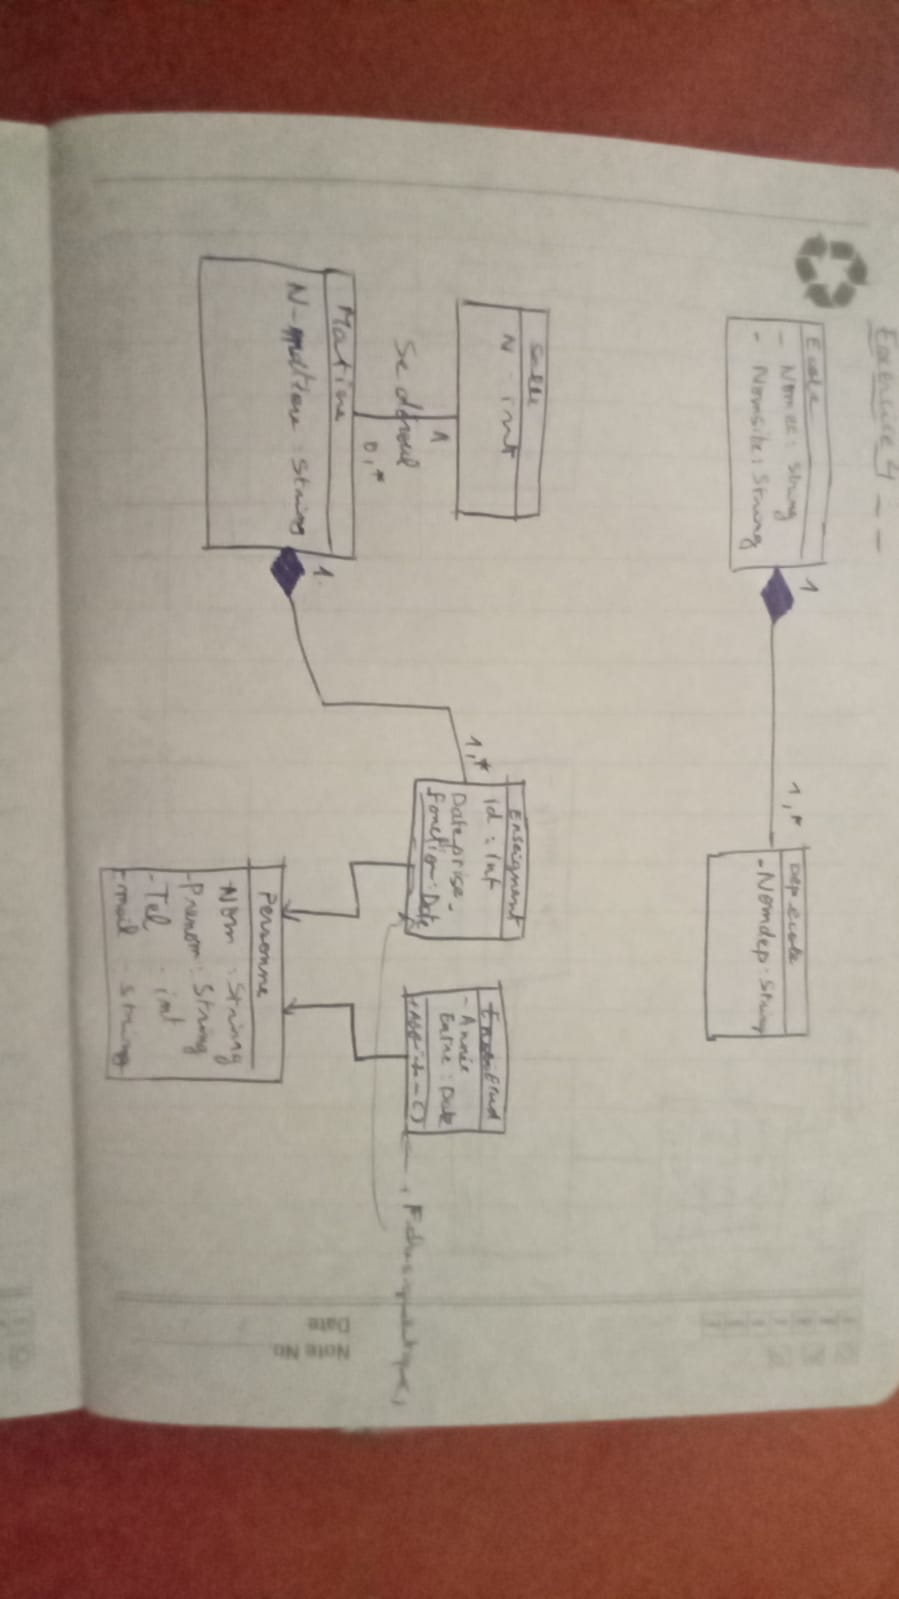 Exercice 4
Ecole
- Nomec : String
- Nomsite : String
1
1,*
Dep ecole
- Nomdep : String
Salle
N : int
1
Se déroul
0,*
Matiere
N-matiere : String
1
1,*
Enseignant
id : int
Date prise -
fonction : Date
Etud
- Année
Entre : Date
Personne
- Nom : String
- Prenom : String
- Tel : int
- mail : String
Note No.
Date